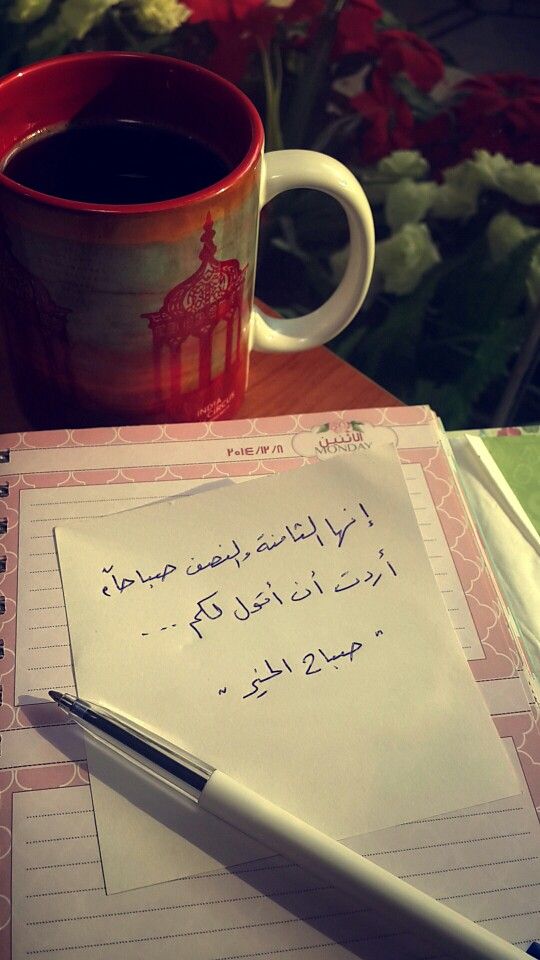 INDIA
CIRCUS
الاثنين
MONDAY
٢٠١٤/١٢/٨
إنها الثامنة والنصف صباحاً،
أردت أن أقول لكم ...
" صباح الخير "